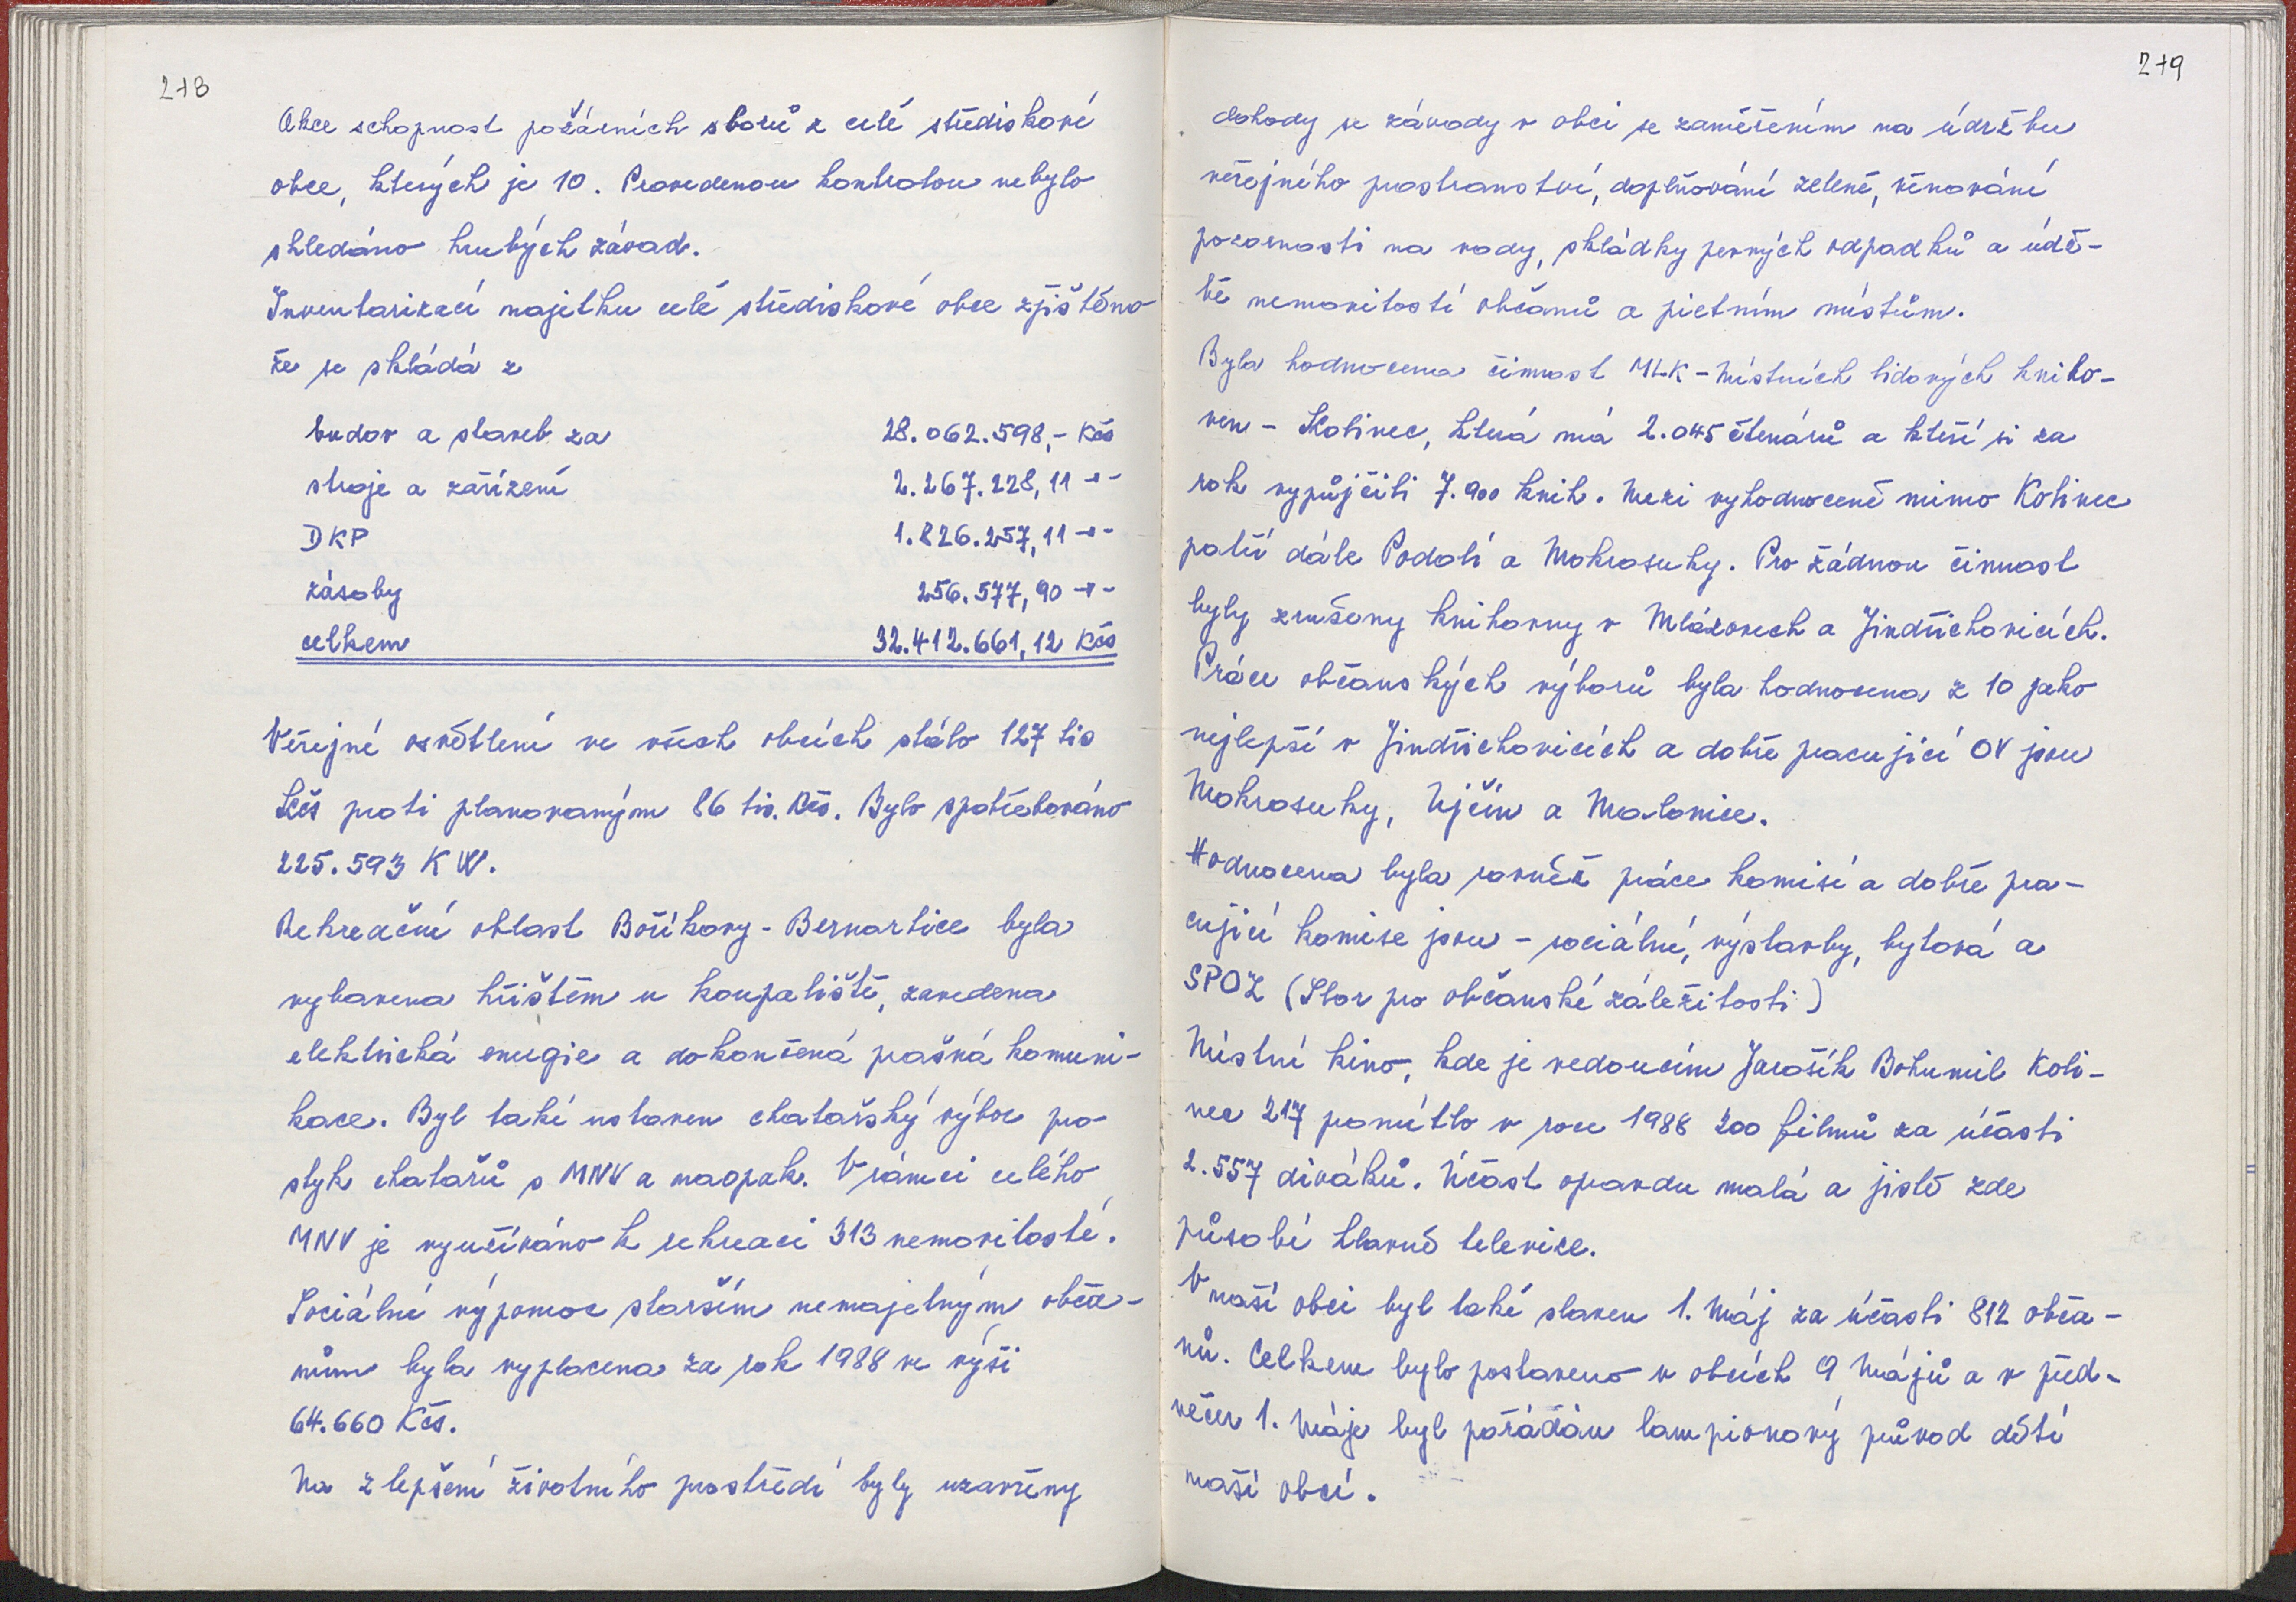 278
Akce schopnost požárních sborů z celé střediskové
obce, kterých je 10. Provedenou kontrolou nebylo
shledáno hrubých závad.
Inventarizací majetku celé střediskové obce zjištěno
že se skládá z
budov a staveb za 28.062.598,- Kčs
stroje a zařízení 2.267.228,11 -"-
DKP 1.826.257,11 -"-
zásoby 256.577,90 -"-
celkem 32.412.661,12 Kčs
Veřejné osvětlení ve všech obcích stálo 127 tis
Kčs proti planovaným 86 tis. Kčs. Bylo spotřebováno
225.593 KW.
Rekreační oblast Boříkovy - Bernartice byla
vybavena hřištěm u koupaliště, zavedena
elektrická energie a dokončená prašná komuni-
kace. Byl také ustaven chatařský výbor pro
styk chatařů s MNV a naopak. V rámci celého
MNV je využíváno k rekreaci 313 nemovitostí.
Sociální výpomoc starším nemajetným obča-
nům byla vyplacena za rok 1988 ve výši
64.660 Kčs.
Na zlepšení životního prostředí byly uzavřeny
279
dohody se závody v obci se zaměřením na údržbu
veřejného prostranství, doplňování zeleně, věnování
pozornosti na vody, skládky pevných odpadků a údž-
bě nemovitostí občanů a pietním místům.
Byla hodnocena činnost MLK - Místních lidových kniho-
ven - Kolinec, která má 2.045 čtenářů a kteří si za
rok vypůjčili 7.900 knih. Mezi vyhodnocené mimo Kolinec
patří dále Podolí a Mokrosuky. Pro žádnou činnost
byly zrušeny knihovny v Mlázovech a Jindřichovicích.
Práce občanských výborů byla hodnocena z 10 jako
nejlepší v Jindřichovicích a dobře pracující OV jsou
Mokrosuky, Ujčín a Malonice.
Hodnocena byla rovněž práce komisí a dobře pra-
cující komise jsou - sociální, výstavby, bytová a
SPOZ (Sbor pro občanské záležitosti)
Místní kino, kde je vedoucím Jarošík Bohumil Koli-
nec 217 promítlo v roce 1988 200 filmů za účasti
2.557 diváků. Účast opravdu malá a jistě zde
působí hlavně televize.
V naší obci byl také slaven 1. Máj za účasti 812 obča-
nů. Celkem bylo postaveno v obcích 9 Májů a v před-
večer 1. Máje byl pořádán lampionový průvod dětí
naší obcí.